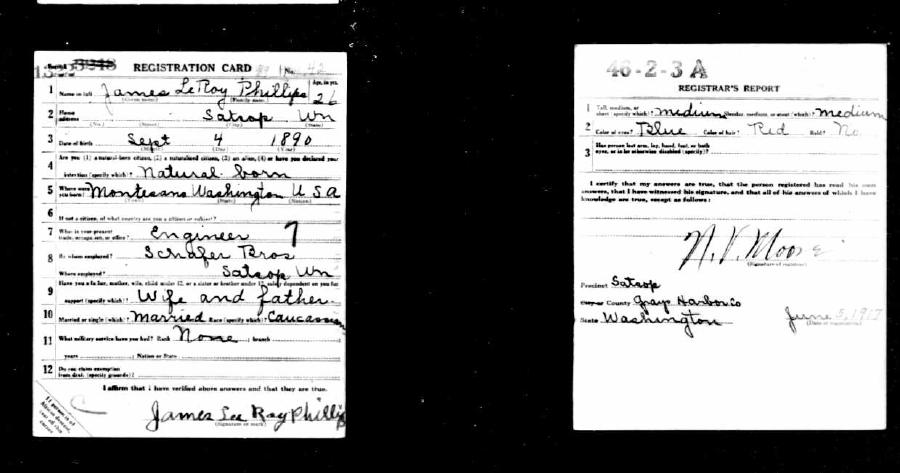 REGISTRATION CARD No. 42
1 Name in full James LeRoy Phillips Age, in yrs. 26
(Given name) (Family name)
2 Home address Satsop Wn
(No.) (Street) (City) (State)
3 Date of birth Sept 4 1890
(Month) (Day) (Year)
4 Are you (1) a natural-born citizen, (2) a naturalized citizen, (3) an alien, (4) or have you declared your
intention (specify which)? Natural born
5 Where were you born? Montesano Washington U S A
(Town) (State) (Nation)
6 If not a citizen, of what country are you a citizen or subject?
7 What is your present trade, occupation, or office? Engineer 7
8 By whom employed? Schafer Bros
Where employed? Satsop Wn
9 Have you a father, mother, wife, child under 12, or a sister or brother under 12, solely dependent on you for
support (specify which)? Wife and father
10 Married or single (which)? Married Race (specify which)? Caucasian
11 What military service have you had? Rank None ; branch
years ; Nation or State
12 Do you claim exemption from draft (specify grounds)?
I affirm that I have verified above answers and that they are true.
James Lee Roy Phillips
(Signature or mark)
If person is of African descent,
46-2-3 A
REGISTRAR'S REPORT
1 Tall, medium, or short (specify which)? medium Slender, medium, or stout (which)? medium
2 Color of eyes? Blue Color of hair? Red Bald? No
3 Has person lost arm, leg, hand, foot, or both eyes, or is he otherwise disabled (specify)?
I certify that my answers are true, that the person registered has read his own
answers, that I have witnessed his signature, and that all of his answers of which I have
knowledge are true, except as follows:
N. V. Moore
(Signature of registrar)
Precinct Satsop
City or County Grays Harbor Co
State Washington June 5, 1917
(Date of registration)